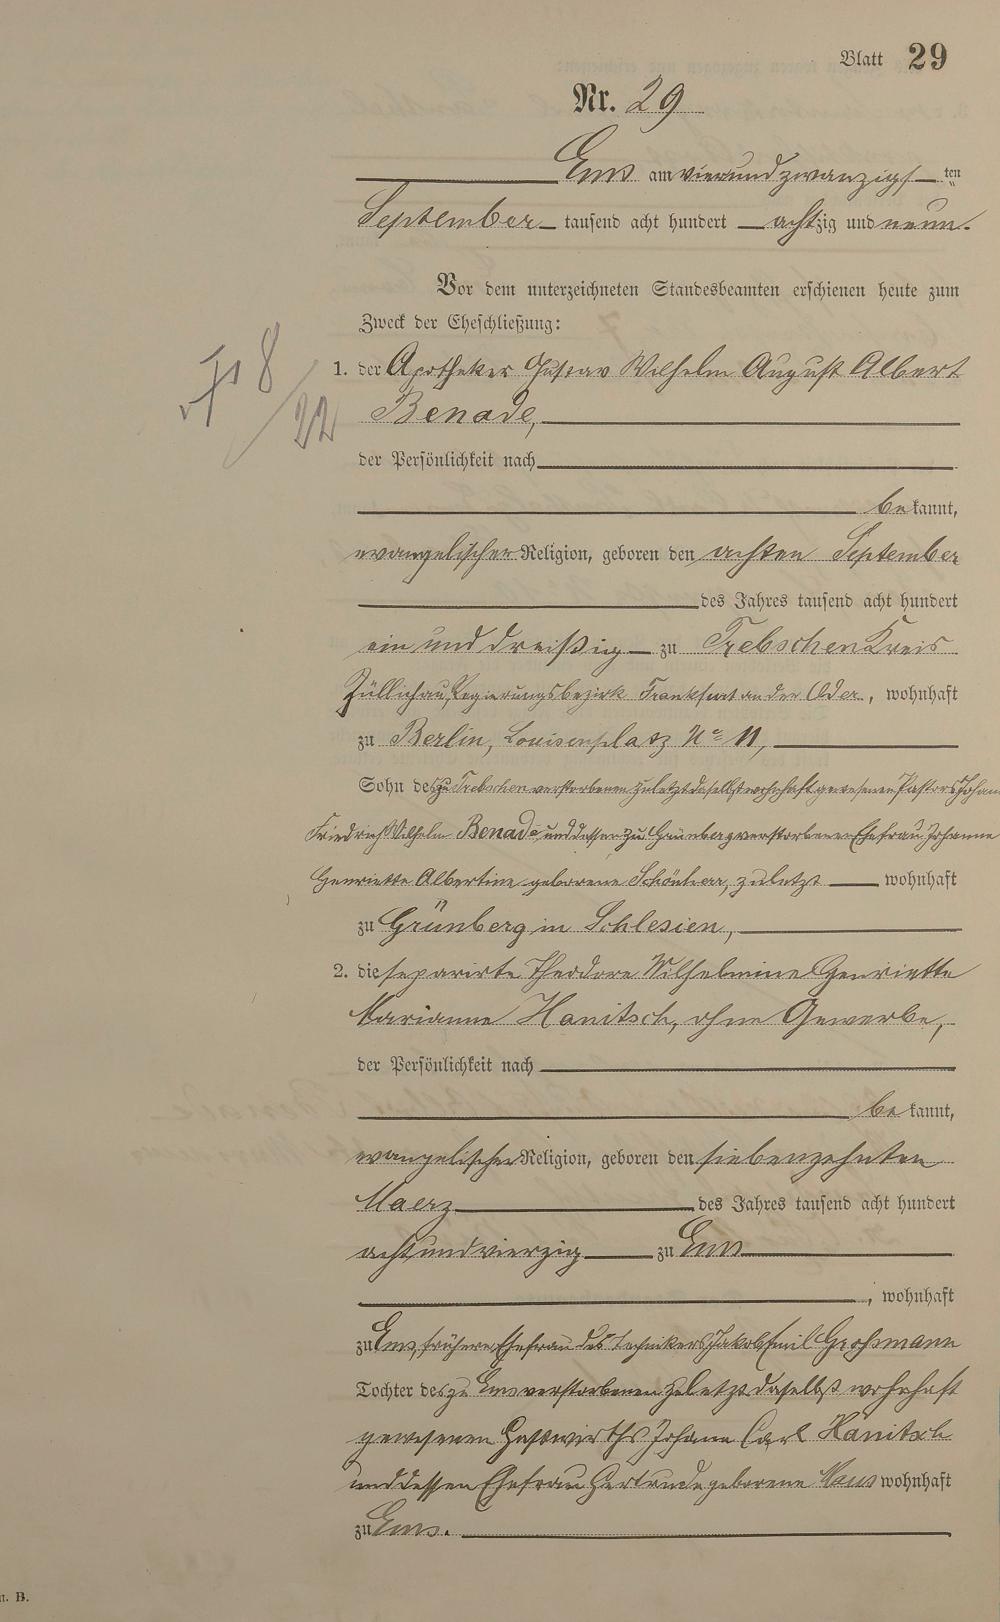 Blatt 29
Nr. 29
Ems am vierundzwanzigs ten
September tausend acht hundert achtzig und neun.
Vor dem unterzeichneten Standesbeamten erschienen heute zum
Zweck der Eheschließung:
1. der Apotheker Gustav Wilhelm August Albert
Benade,
der Persönlichkeit nach
bekannt,
evangelischer Religion, geboren den achten September
des Jahres tausend acht hundert
ein und dreißig zu Trebschen Kreis
Züllichau, Regierungsbezirk Frankfurt an der Oder, wohnhaft
zu Berlin, Louisenplatz No 11,
Sohn des zu Trebschen verstorbenen zuletzt daselbst wohnhaft gewesenen Pastors Johann
Friedrich Wilhelm Benade und dessen zu Grünberg verstorbenen Ehefrau Johanne
Henriette Albertine geborene Schönherr, zuletzt wohnhaft
zu Grünberg in Schlesien,
2. die separirte Theodore Wilhelmine Henriette
Marianne Hanitsch, ohne Gewerbe,
der Persönlichkeit nach
bekannt,
evangelischer Religion, geboren den siebenzehnten
Maerz des Jahres tausend acht hundert
achtundvierzig zu Ems
, wohnhaft
zu Ems, frühere Ehefrau des Technikers Jakob Emil Großmann
Tochter des zu Ems verstorbenen zuletzt daselbst wohnhaft
gewesenen Gastwirths Johann Carl Hänitsch
und dessen Ehefrau Gertrude geborene wohnhaft
zu Ems.
8
22
B.